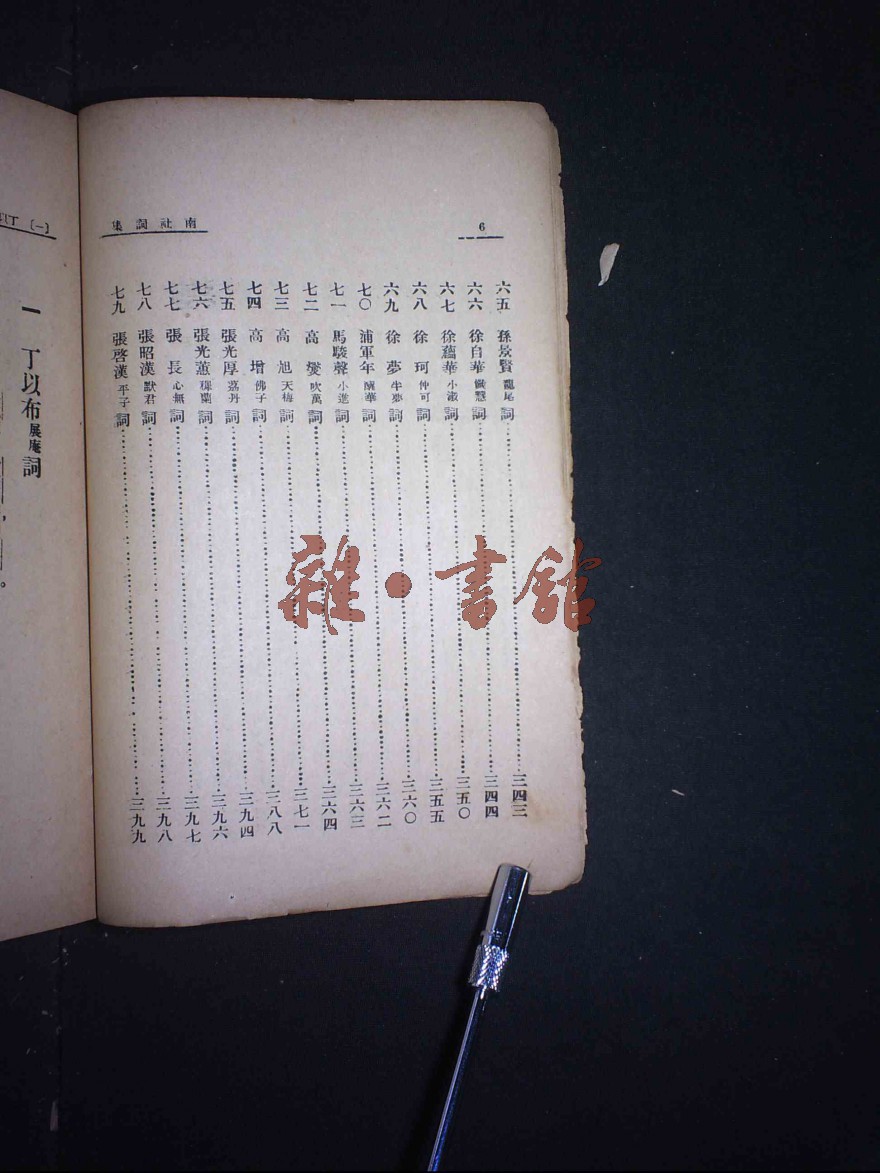 6
南社詞集
六五 孫景賢 龍尾 詞 三四三
六六 徐自華 懺慧 詞 三四四
六七 徐蘊華 小淑 詞 三五〇
六八 徐珂 仲可 詞 三五五
六九 徐夢 半夢 詞 三六〇
七〇 浦軍年 醵華 詞 三六二
七一 馬駿聲 小進 詞 三六三
七二 高燮 吹萬 詞 三六四
七三 高旭 天梅 詞 三七一
七四 高增 佛子 詞 三八八
七五 張光厚 荔丹 詞 三九四
七六 張光蕙 穉蘭 詞 三九六
七七 張長 心無 詞 三九七
七八 張昭漢 默君 詞 三九八
七九 張啓漢 平子 詞 三九九
〔一〕丁
一 丁以布 展庵 詞
雜·書館